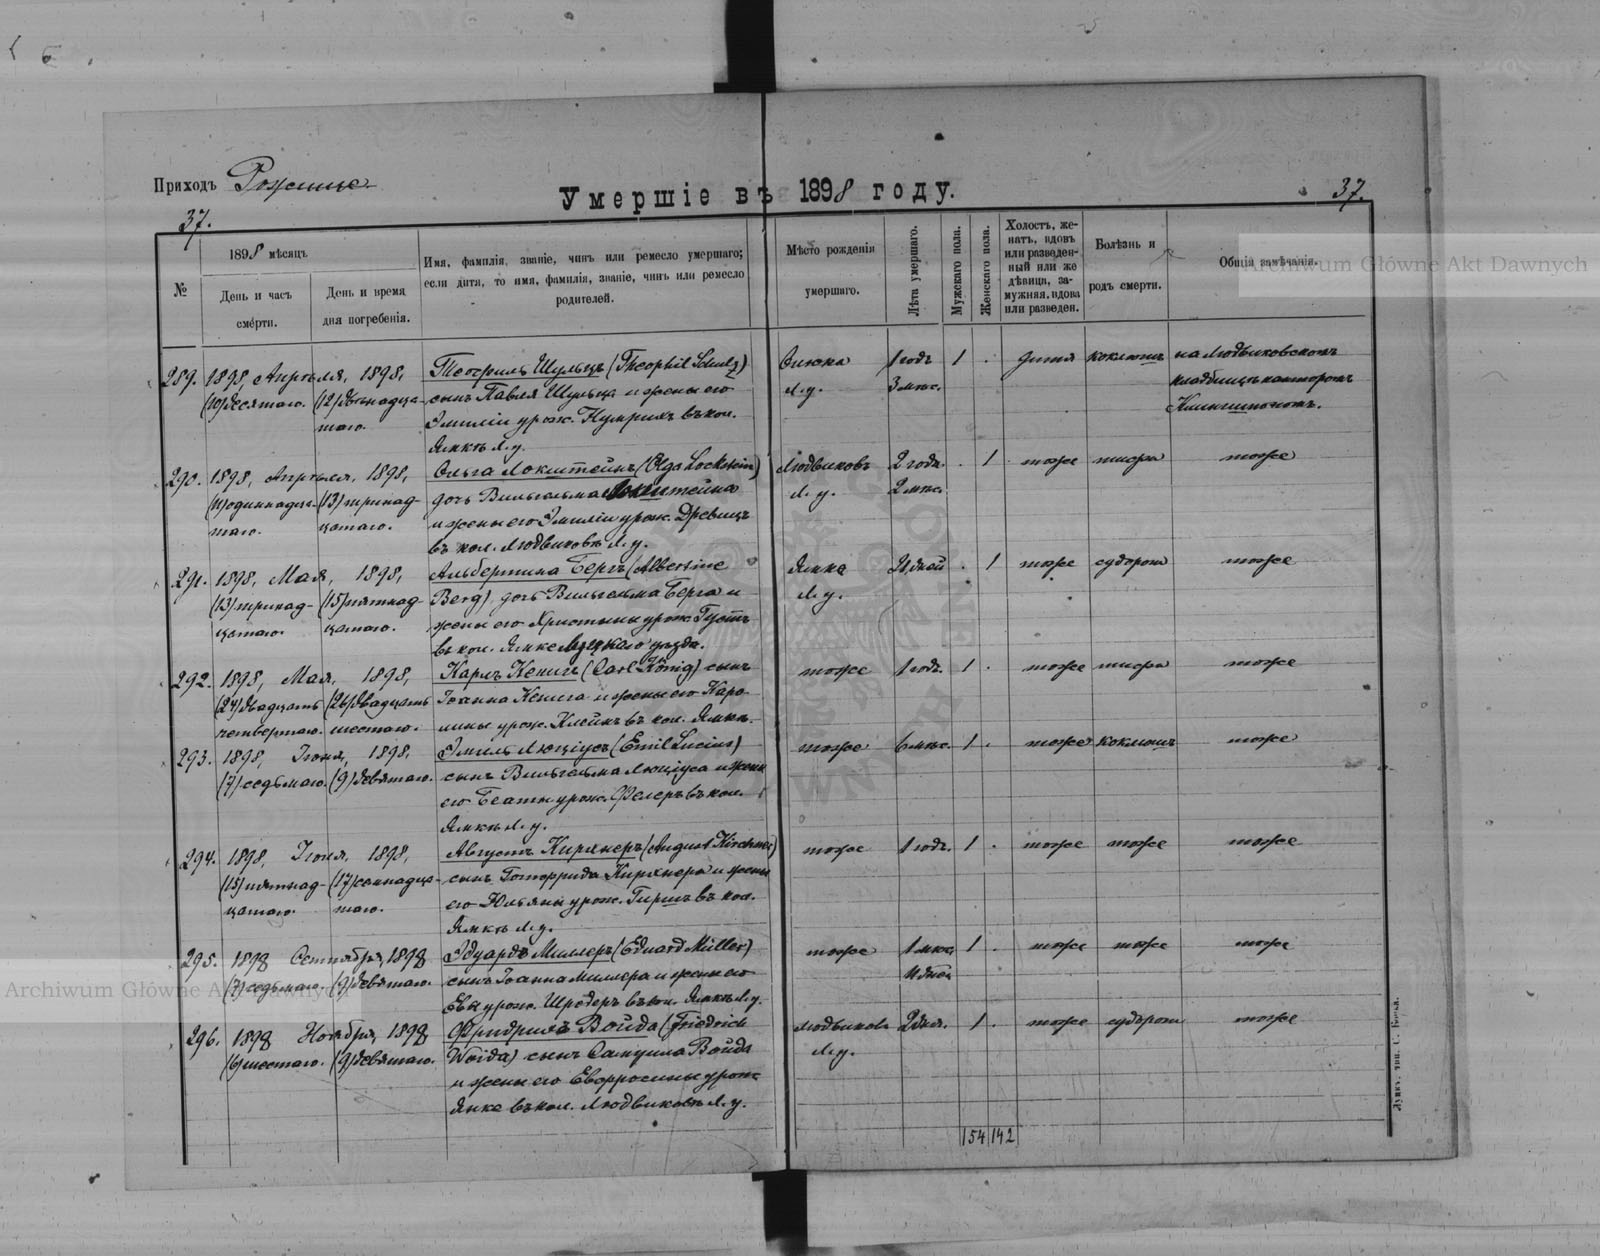 Приходъ Рожище
Умершіе въ 1898 году.
37.
37.
№
1898 мѣсяцъ
День и часъ смерти.
День и время дня погребенія.
Имя, фамилія, званіе, чинъ или ремесло умершаго;
если дитя, то имя, фамилія, званіе, чинъ или ремесло
родителей.
Мѣсто рожденія
умершаго.
Лѣта умершаго.
Мужскаго пола.
Женскаго пола.
Холостъ, же-
натъ, вдовъ
или разведен-
ный или же
дѣвица, за-
мужняя, вдова
или разведен.
Болѣзнь и
родъ смерти.
Общія замѣчанія.
Archiwum Główne Akt Dawnych
289. 1898, Апрѣля, 1898, Теофилъ Шульцъ (Theophil Schulz) 1 годъ 1 . дитя коклюшъ на Людвиковскомъ
(10) десятаго. (12) двѣнадца- сынъ Павла Шульца и жены его Л. у. 3 мѣс. кладбищѣ канторомъ
таго. Эмиліи урож. въ кол.
Ямкѣ Л. у.
290. 1898, Апрѣля, 1898, Ольга Локштейнъ (Olga Lockstein) Людвиковъ 2 года . 1 тоже тоже
(11) одиннадца- (13) тринад- дочь Вильгельма Локштейна Л. у. 2 мѣс.
таго. цатаго. и жены его Эмиліи урож. Древицъ
въ кол. Людвиковѣ Л. у.
291. 1898, Мая, 1898, Альбертина Бергъ (Albertine Ямка дней . 1 тоже судороги тоже
(13) тринад- (15) пятнад- Berg) дочь Вильгельма Берга и Л. у.
цатаго. цатаго. жены его Христины урож.
въ кол. Ямке Луцкаго уѣзда.
292. 1898, Мая, 1898, Карлъ Кенигъ (Carl König) сынъ тоже 1 годъ. 1 . тоже тоже
(24) двадцать (26) двадцать Іоанна Кенига и жены его Каро-
четвертаго. шестаго. лины урож. Клейнъ въ кол. Ямкѣ.
293. 1898, Іюня, 1898, Эмиль Люціусъ (Emil Lucius) тоже 6 мѣс. 1 . тоже коклюшъ тоже
(7) седьмаго. (9) девятаго. сынъ Вильгельма Люціуса и жены
его Беаты урож. въ кол.
Ямкѣ Л. у.
294. 1898, Іюня, 1898, Августъ Кирхнеръ (August Kirchner) тоже 1 годъ. 1 . тоже тоже тоже
(15) пятнад- (17) семнадца- сынъ Готфрида Кирхнера и жены
цатаго. таго. его Юльяны урож. Гиршъ въ кол.
Ямкѣ Л. у.
295. 1898 Сентября, 1898 Эдуардъ Миллеръ (Eduard Müller) тоже 1 мѣс. 1 . тоже тоже тоже
(7) седьмаго. (9) девятаго. сынъ Іоанна Миллера и жены его дней
Евы урож. Шредеръ въ кол. Ямкѣ Л. у.
296. 1898 Ноября, 1898 Фридрихъ Войда (Friedrich Людвиковъ 2 дня. 1 . тоже судороги тоже
(6) шестаго. (9) девятаго. Woida) сынъ Самуила Войда Л. у.
и жены его Евфросины урож.
Янке въ кол. Людвиковѣ Л. у.
154 142
Archiwum Główne Akt Dawnych